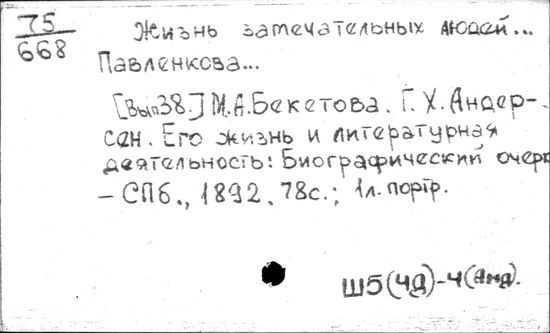 75
668
Жизнь замечательных людей...
Павленкова...
[Вып38.] М.А.Бекетова. Г.Х.Андер-
сен. Его жизнь и литературная
деятельность: Биографический очерк
- СПб., 1892. 78с.; 1л. портр.
Ш5(4Д)-4(Анд).